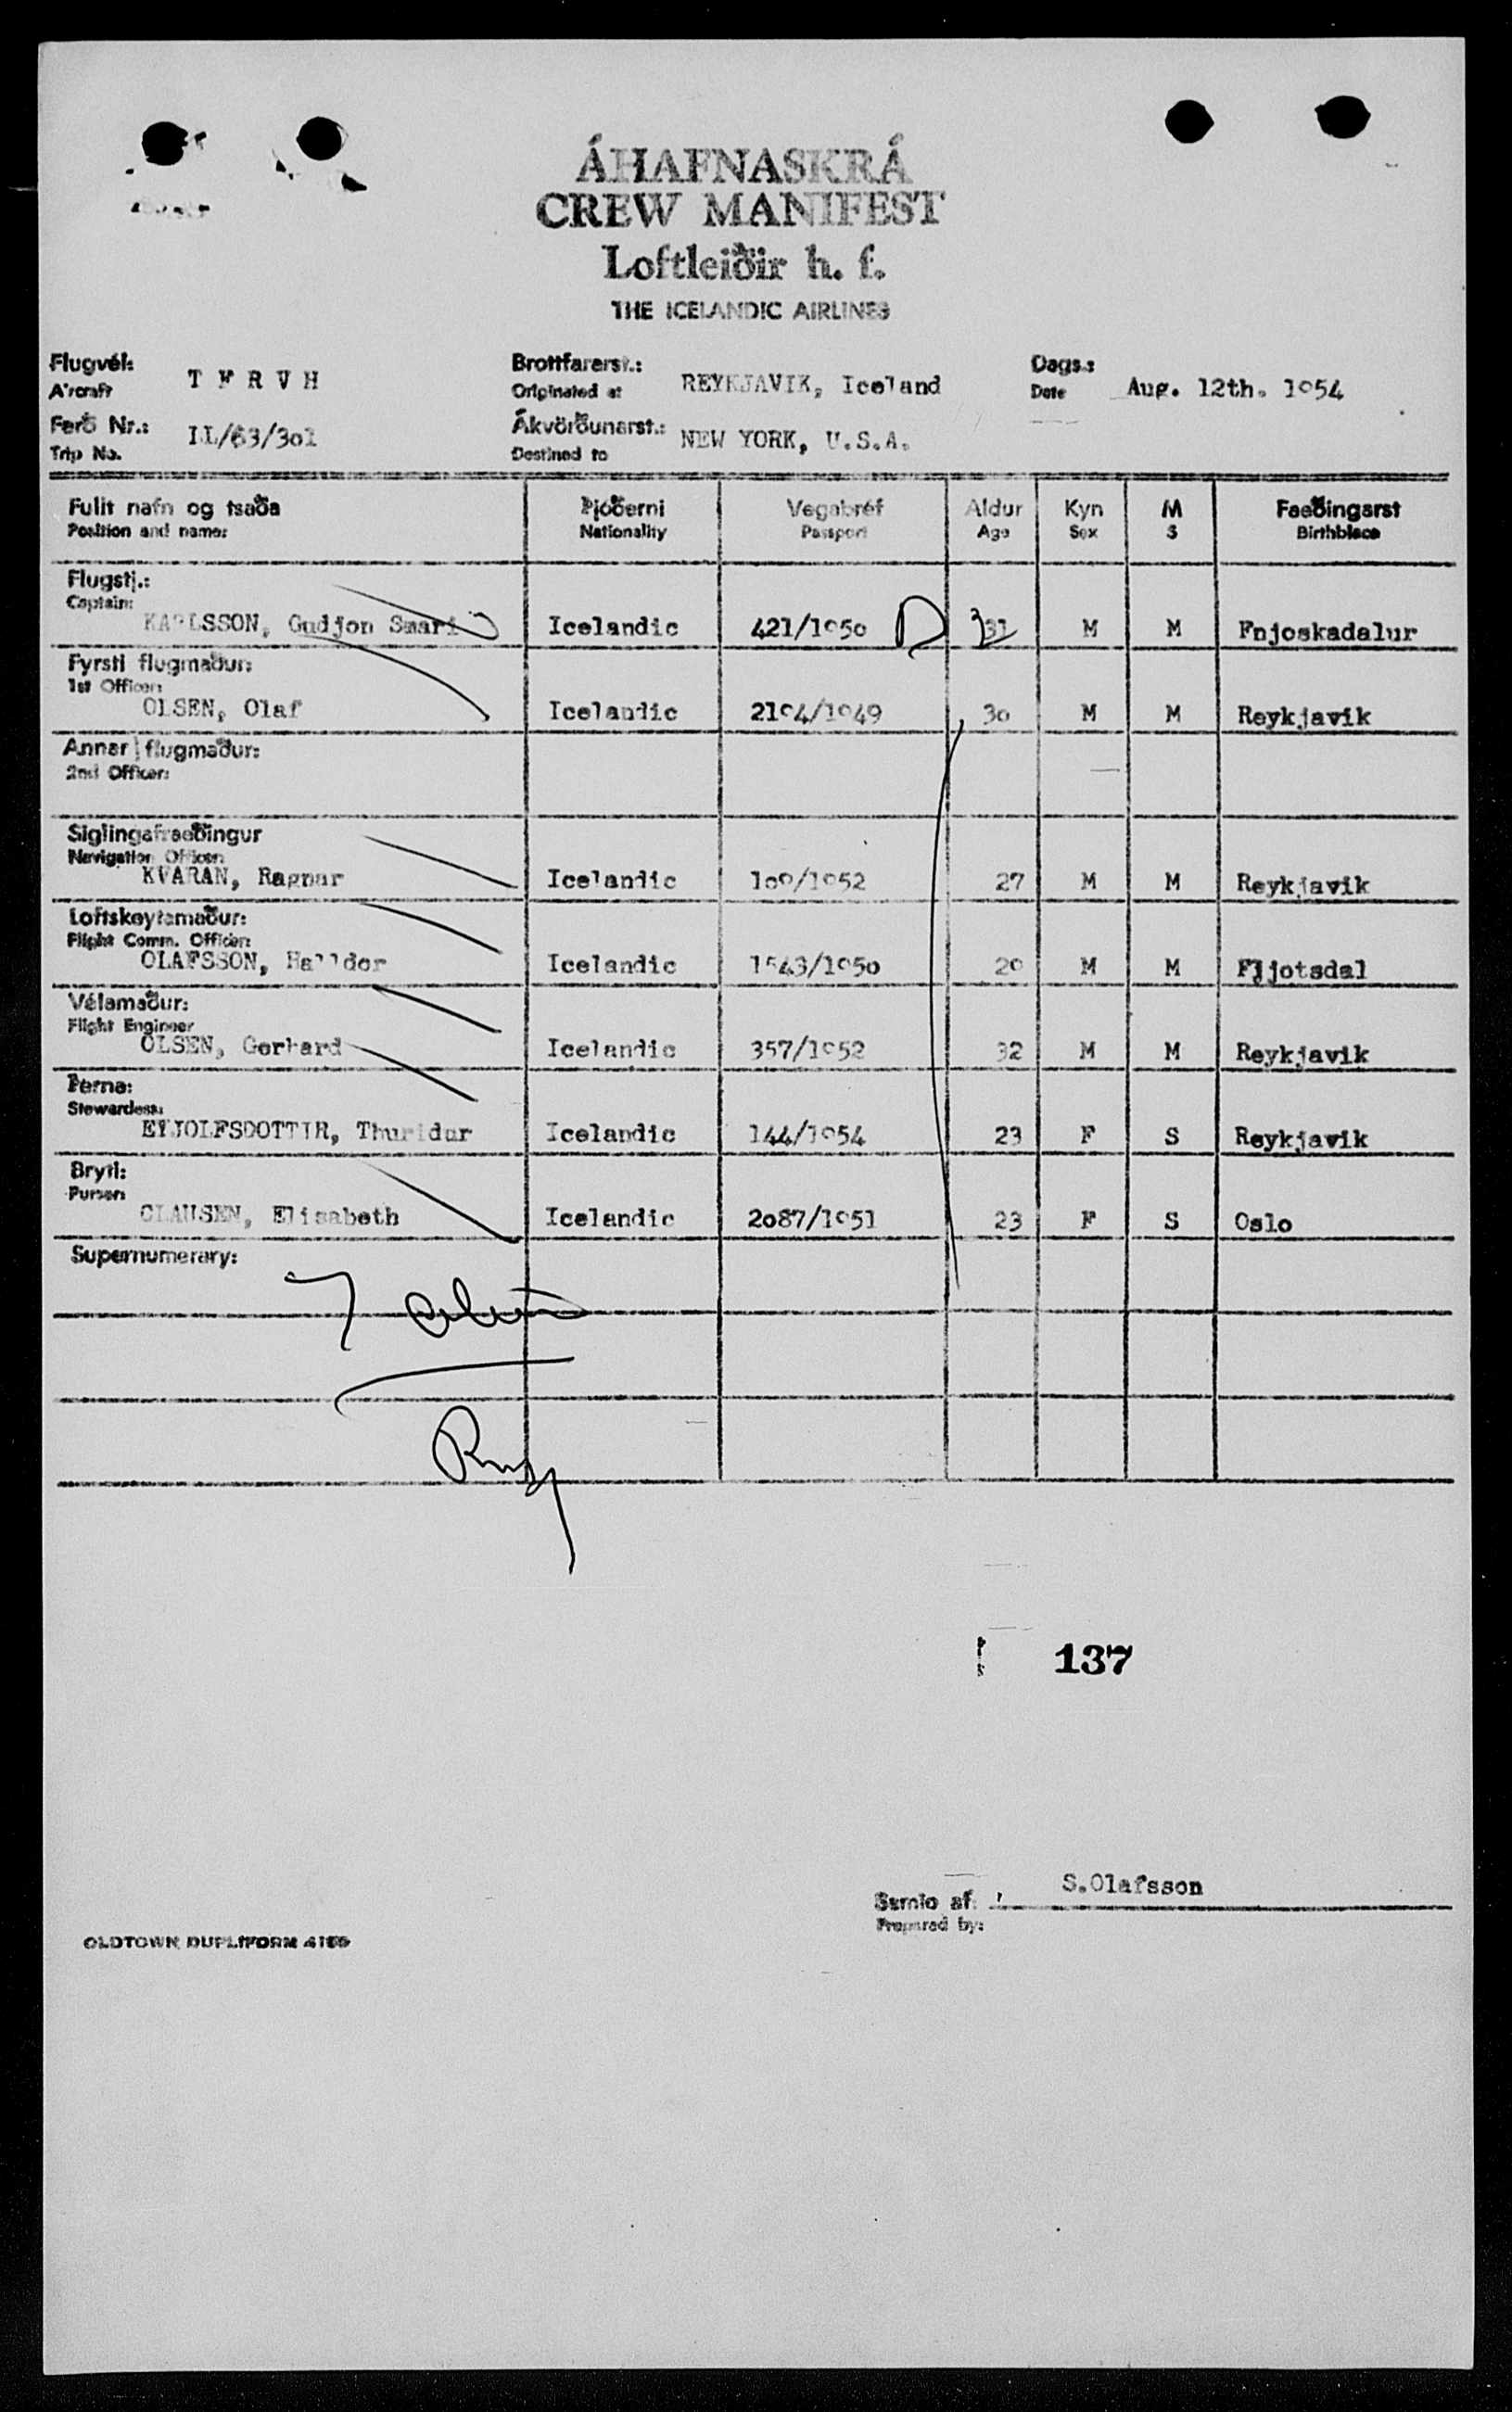 ÁHAFNASKRÁ
CREW MANIFEST
Loftleiðir h. f.
THE ICELANDIC AIRLINES
Flugvél: T F R V H Brottfararst.: REYKJAVIK, Iceland Dags.: Aug. 12th. 1954
Aircraft Originated at Date
Ferð Nr.: LL/63/301 Ákvörðunarst.: NEW YORK, U.S.A.
Trip No. Destined to
Fullt nafn og tsaða Þjóðerni Vegabréf Aldur Kyn M Faeðingarst
Position and name: Nationality Passport Age Sex S Birthblace
Flugstj.:
Captain:
KARLSSON, Gudjon Smari Icelandic 421/1950 31 M M Fnjoskadalur
Fyrsti flugmaður:
1st Officer:
OLSEN, Olaf Icelandic 2194/1949 30 M M Reykjavik
Annar flugmaður:
2nd Officer:
Siglingafraeðingur
Navigation Officer:
KVARAN, Ragnar Icelandic 109/1952 27 M M Reykjavik
Loftskeytamaður:
Flight Comm. Officer:
OLAFSSON, Halldor Icelandic 1543/1950 29 M M Fljotsdal
Vélamaður:
Flight Engineer
OLSEN, Gerhard Icelandic 357/1952 32 M M Reykjavik
Þerna:
Stewardess:
EYJOLFSDOTTIR, Thuridur Icelandic 144/1954 23 F S Reykjavik
Bryti:
Purser:
CLAUSEN, Elisabeth Icelandic 2087/1951 23 F S Oslo
Supernumerary:
7
137
Samið af: S.Olafsson
Prepared by:
OLDTOWN DUPLIFORM